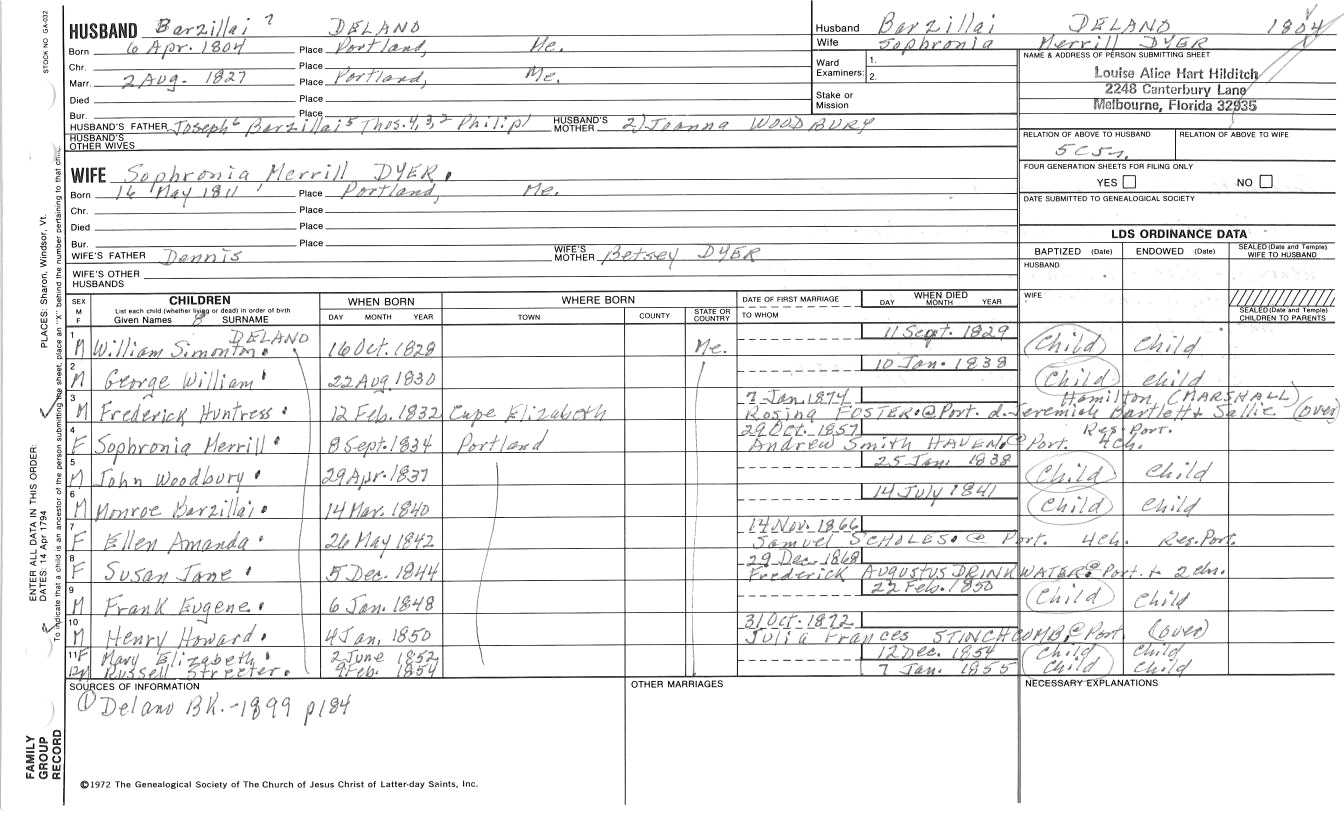 STOCK NO. GA-032
HUSBAND Barzillai 7 DELANO
Born 6 Apr. 1804 Place Portland, Me.
Chr. Place
Marr. 2 Aug. 1827 Place Portland, Me.
Died Place
Bur. Place
HUSBAND'S FATHER Joseph 6 Barzillai 5 Thos. 4, 3, 2 Philip 1 HUSBAND'S MOTHER 2) Joanna WOODBURY
HUSBAND'S OTHER WIVES
WIFE Sophronia Merrill DYER.
Born 16 May 1811 Place Portland, Me.
Chr. Place
Died Place
Bur. Place
WIFE'S FATHER Dennis WIFE'S MOTHER Betsey DYER
WIFE'S OTHER HUSBANDS
Husband Barzillai DELANO 1804
Wife Sophronia Merrill DYER
Ward Examiners: 1. 2.
Stake or Mission
NAME & ADDRESS OF PERSON SUBMITTING SHEET
Louise Alice Hart Hilditch
2248 Canterbury Lane
Melbourne, Florida 32935
RELATION OF ABOVE TO HUSBAND RELATION OF ABOVE TO WIFE
5C5r.
FOUR GENERATION SHEETS FOR FILING ONLY
YES NO
DATE SUBMITTED TO GENEALOGICAL SOCIETY
LDS ORDINANCE DATA
BAPTIZED (Date) ENDOWED (Date) SEALED (Date and Temple) WIFE TO HUSBAND
HUSBAND
WIFE
SEALED (Date and Temple) CHILDREN TO PARENTS
SEX M F CHILDREN WHEN BORN WHERE BORN DATE OF FIRST MARRIAGE WHEN DIED
List each child (whether living or dead) in order of birth
Given Names 8 SURNAME DAY MONTH YEAR TOWN COUNTY STATE OR COUNTRY TO WHOM DAY MONTH YEAR
1 M William Simonton. DELANO 16 Oct. 1828 Me. 11 Sept. 1829 Child Child
2 M George William 22 Aug. 1830 10 Jan. 1838 Child Child
3 M Frederick Huntress. 12 Feb. 1832 Cape Elizabeth 7 Jan. 1874 Hamilton (MARSHALL)
Rosina FOSTER. @ Port. d. Jeremiah Bartlett + Sallie (over)
4 F Sophronia Merrill. 8 Sept. 1834 Portland 29 Oct. 1857 Res. Port.
Andrew Smith HAVEN. @ Port. 4ch.
5 M John Woodbury. 29 Apr. 1837 25 Jan. 1838 Child Child
6 M Monroe Barzillai. 14 Mar. 1840 14 July 1841 Child Child
7 F Ellen Amanda. 26 May 1842 14 Nov. 1866
Samuel SCHOLES. @ Port. 4ch. Res. Port.
8 F Susan Jane. 5 Dec. 1844 29 Dec. 1868
Frederick AUGUSTUS DRINKWATER @ Port. + 2 chs.
9 M Frank Eugene. 6 Jan. 1848 22 Feb. 1850 Child Child
10 M Henry Howard. 4 Jan. 1850 31 Oct. 1872
Julia Frances STINCHCOMB. @ Port. (over)
11 F Mary Elizabeth. 2 June 1852 12 Dec. 1854 Child Child
12 M Russell Streeter. 9 Feb. 1854 7 Jan. 1855 Child Child
SOURCES OF INFORMATION OTHER MARRIAGES NECESSARY EXPLANATIONS
① Delano Bk.-1899 p184
©1972 The Genealogical Society of The Church of Jesus Christ of Latter-day Saints, Inc.
FAMILY GROUP RECORD
ENTER ALL DATA IN THIS ORDER:
DATES: 14 Apr 1794
PLACES: Sharon, Windsor, Vt.
To indicate that a child is an ancestor of the person submitting the sheet, place an "X" behind the number pertaining to that child.